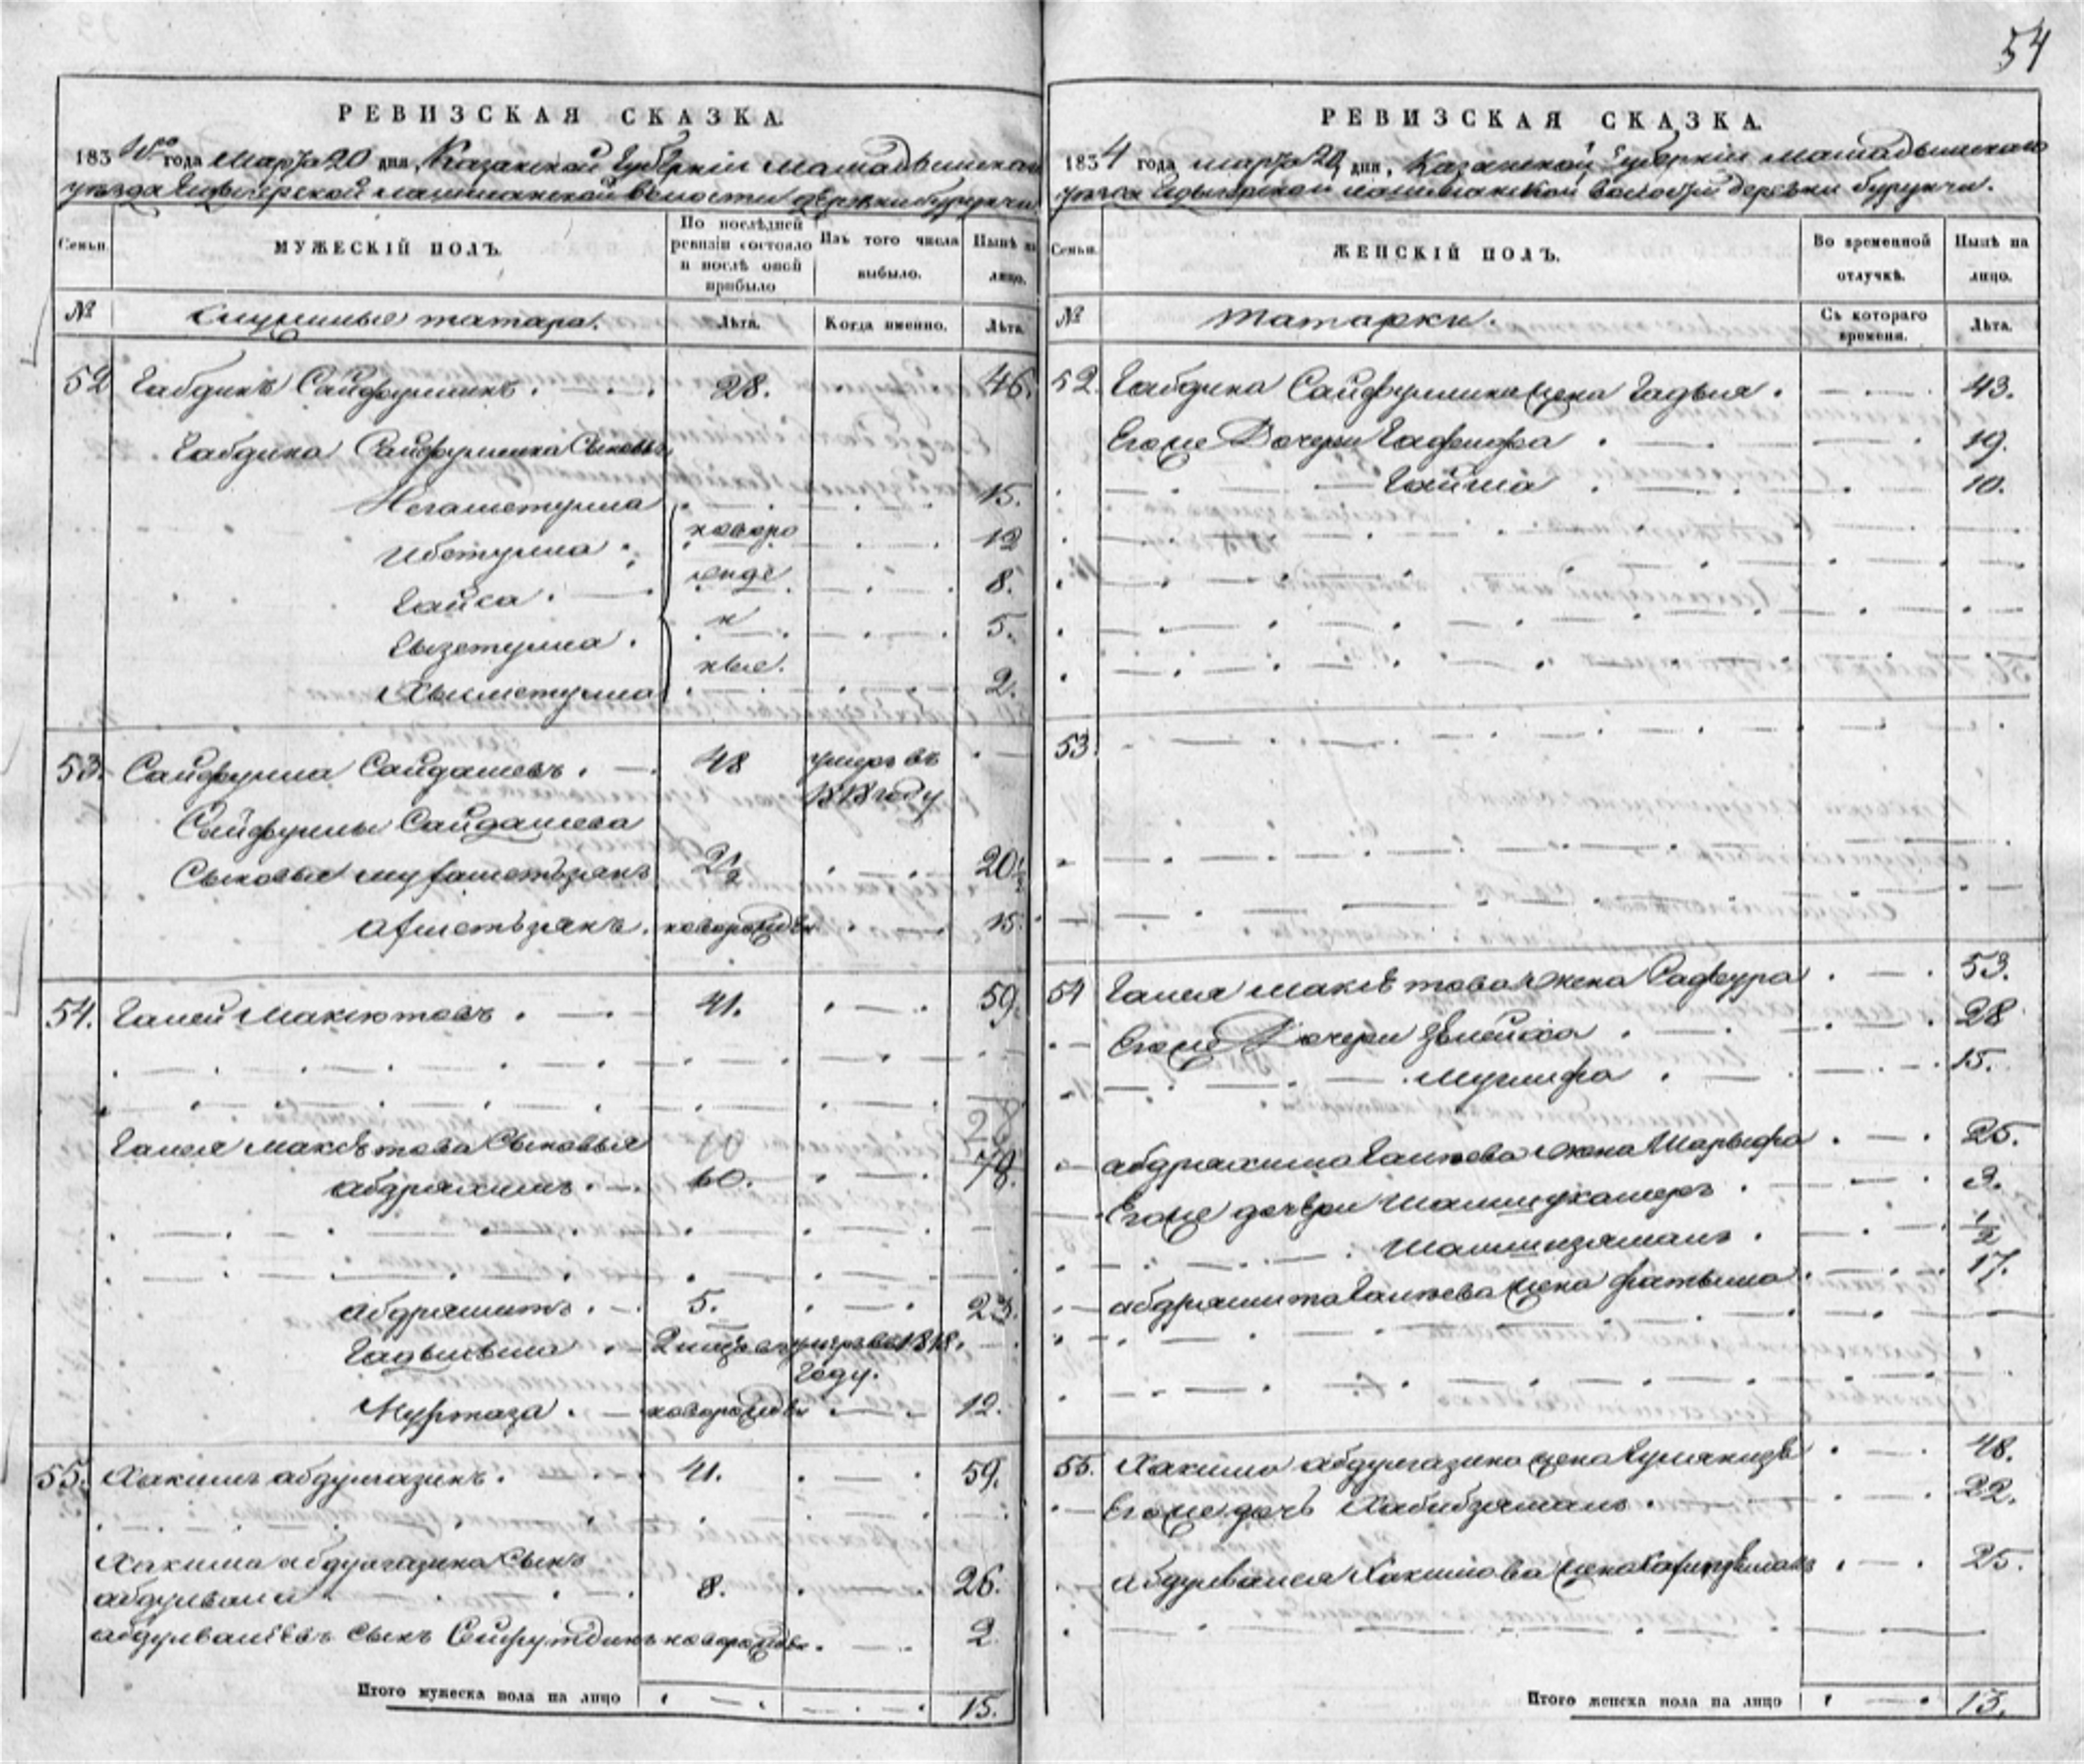 54
РЕВИЗСКАЯ СКАЗКА.
1834го года марта 20 дня, Казанской Губернiи Мамадышскаго
уезда деревни бурунчи
Семьи.
МУЖЕСКIЙ ПОЛЪ.
По послѣдней ревизiи состояло и послѣ оной прибыло
Изъ того числа выбыло.
Нынѣ на лицо.
№
служилые татара.
Лѣта.
Когда именно.
Лѣта.
52 Габдинъ Сайфуллинъ. 28. 46.
Габдина Сайфуллина Сыновья
Негаметулла 15.
Ибетулла 12
Гайса. 8.
Гызетулла. 5.
Хыльметулла 2.
новоро
жде
н
ные.
53. Сайфулла Сайдашевъ. 48 умеръ въ
1818 году
Сайфуллы Сайдашева
Сыновья мухаметзянъ 2 1/2 20 1/2
ахметзянъ. новорожден 15.
54. Галей Максютовъ. 41. 59.
Галея Максютова Сыновья 10 28
абдрахимъ. 10. 78.
абдрашитъ. 5. 23.
умеръ в 1818.
году.
Муртаза. новорожден 12.
55. Хакимъ абдулгазинъ. 41. 59.
Хакима абдулгазина Сынъ
абдулвали 8. 26.
абдулвалеевъ сынъ Сейфутдинъ новорожден. 2
Итого мужеска пола на лицо 15.
РЕВИЗСКАЯ СКАЗКА.
1834 года марта 20 дня, Казанской Губернiи Мамадышскаго
уезда волости деревни бурунчи.
Семьи.
ЖЕНСКIЙ ПОЛЪ.
Во временной отлучкѣ.
Нынѣ на лицо.
№
татарки.
Съ котораго времени.
Лѣта.
52. Габдина Сайфуллина жена Гадыля. 43.
Егоже Дочери Гафифа 19.
Гайша 10.
53.
54 Галея Максютова жена Сафура 53.
Егоже Дочери Зюлейха 28
15.
абдрахима Галеева жена Шарыфа 25.
Егоже дочери 3.
Шамшизямалъ. 1/2
абдрашита Галеева жена фатыма. 17.
55. Хакима абдулгазина жена 48.
Егоже дочь Хабибзямалъ. 22.
абдулвалея Хакимова жена 25.
Итого женска пола на лицо 13.